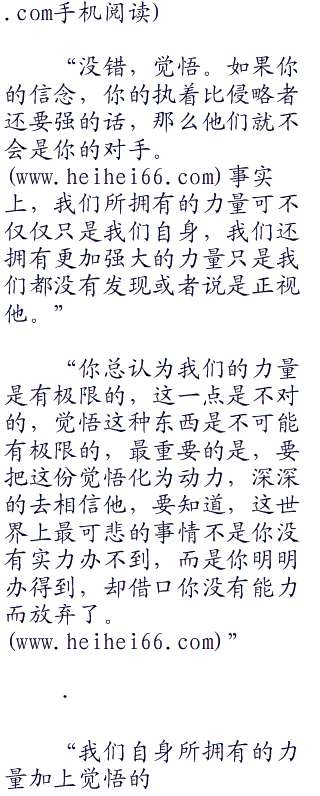 .com手机阅读)
“没错，觉悟。如果你
的信念，你的执着比侵略者
还要强的话，那么他们就不
会是你的对手。
(www.heihei66.com)事实
上，我们所拥有的力量可不
仅仅只是我们自身，我们还
拥有更加强大的力量只是我
们都没有发现或者说是正视
他。”
“你总认为我们的力量
是有极限的，这一点是不对
的，觉悟这种东西是不可能
有极限的，最重要的是，要
把这份觉悟化为动力，深深
的去相信他，要知道，这世
界上最可悲的事情不是你没
有实力办不到，而是你明明
办得到，却借口你没有能力
而放弃了。
(www.heihei66.com)”
.
“我们自身所拥有的力
量加上觉悟的